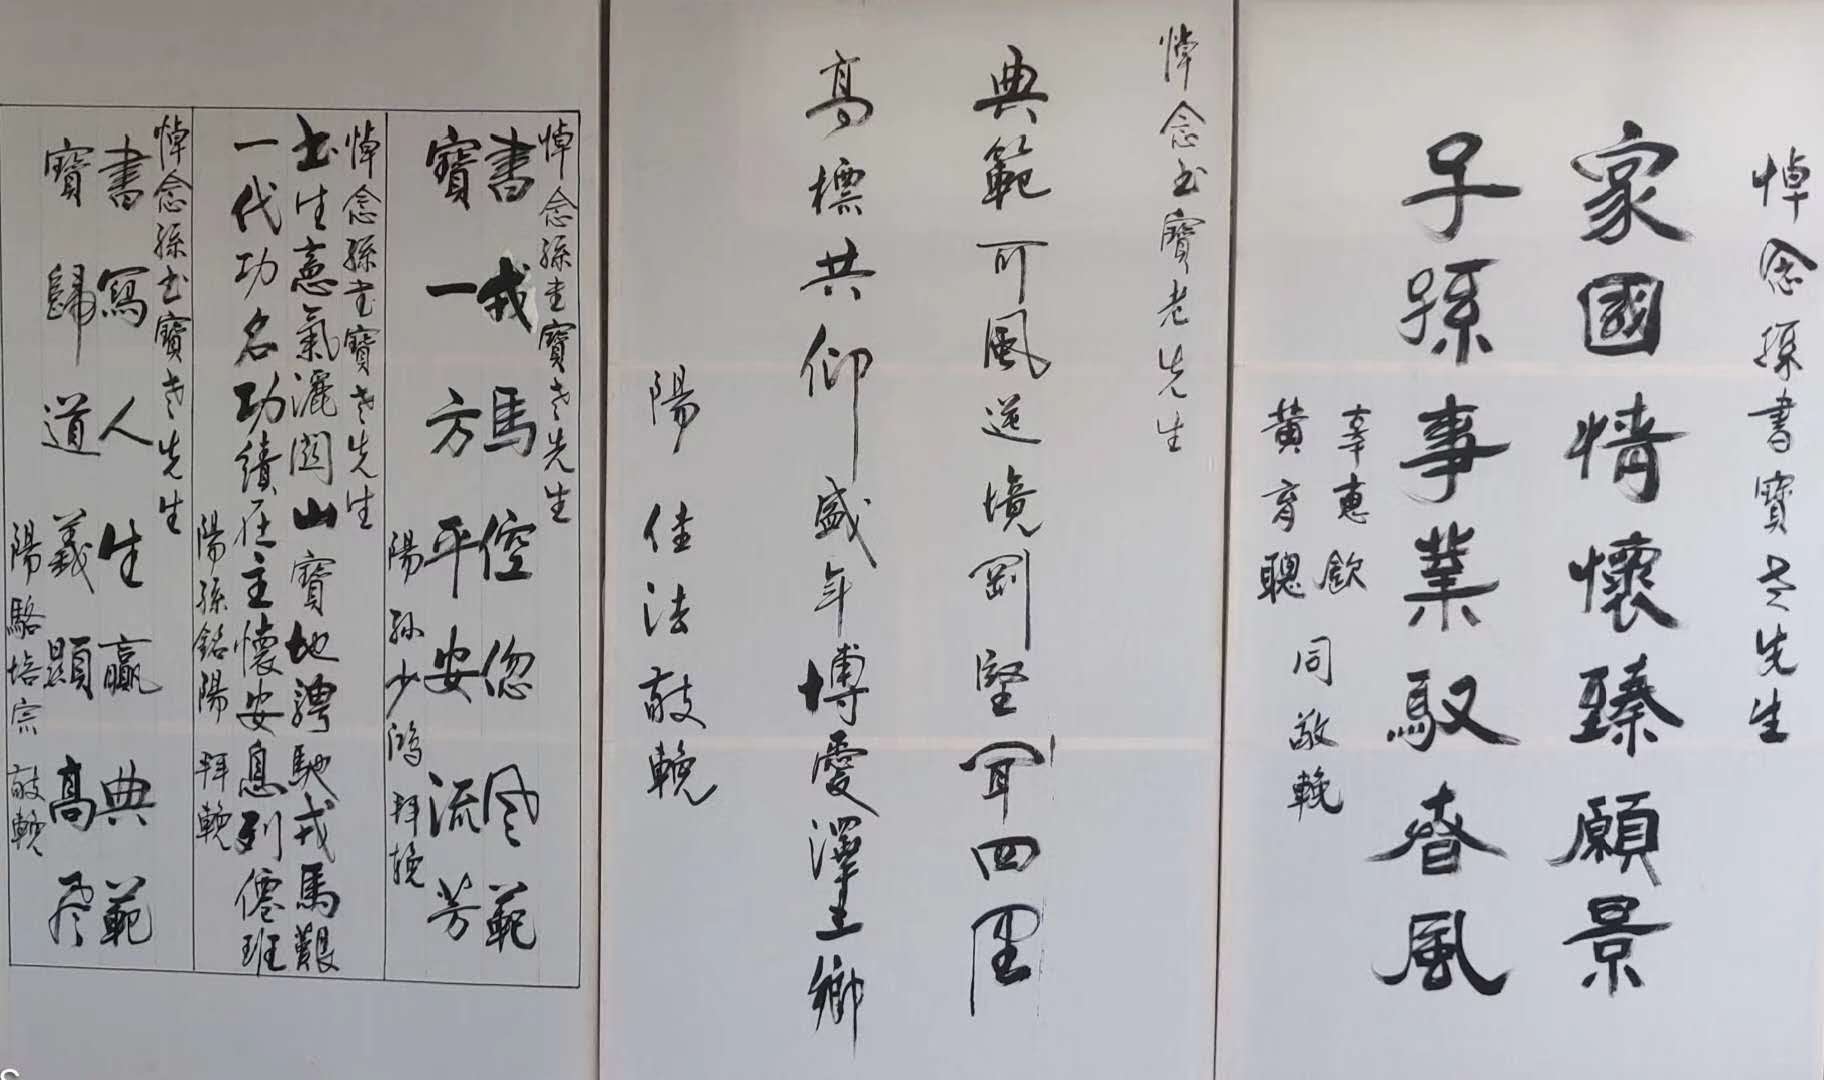 悼念孫書寶老先生
家國情懷臻願景
子孫事業馭春風
辜惠欽
黃育聰
同敬輓
悼念书寶老先生
典範可風逆境剛堅聞四里
高標共仰盛年博愛澤王鄉
陽佳法敬輓
悼念孫书寶老先生
書戎馬倥偬风範
寶一方平安流芳
陽孙少鴻拜挽
悼念孫书寶老先生
书生意氣灑関山寶地騁馳戎馬艱
一代功名功績在主懷安息列僊班
陽孫銘陽拜輓
悼念孫书寶老先生
書寫人生贏典範
寶歸道義顯高風
陽駱培宗敬輓